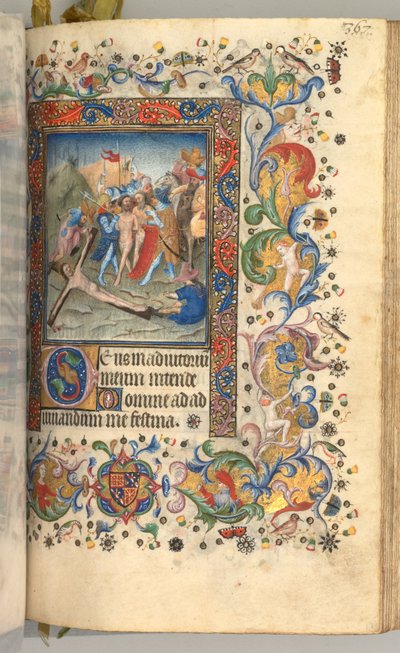 362
Deus in adiutorium
meum intende
Domine ad ad
iuuandum me festina.